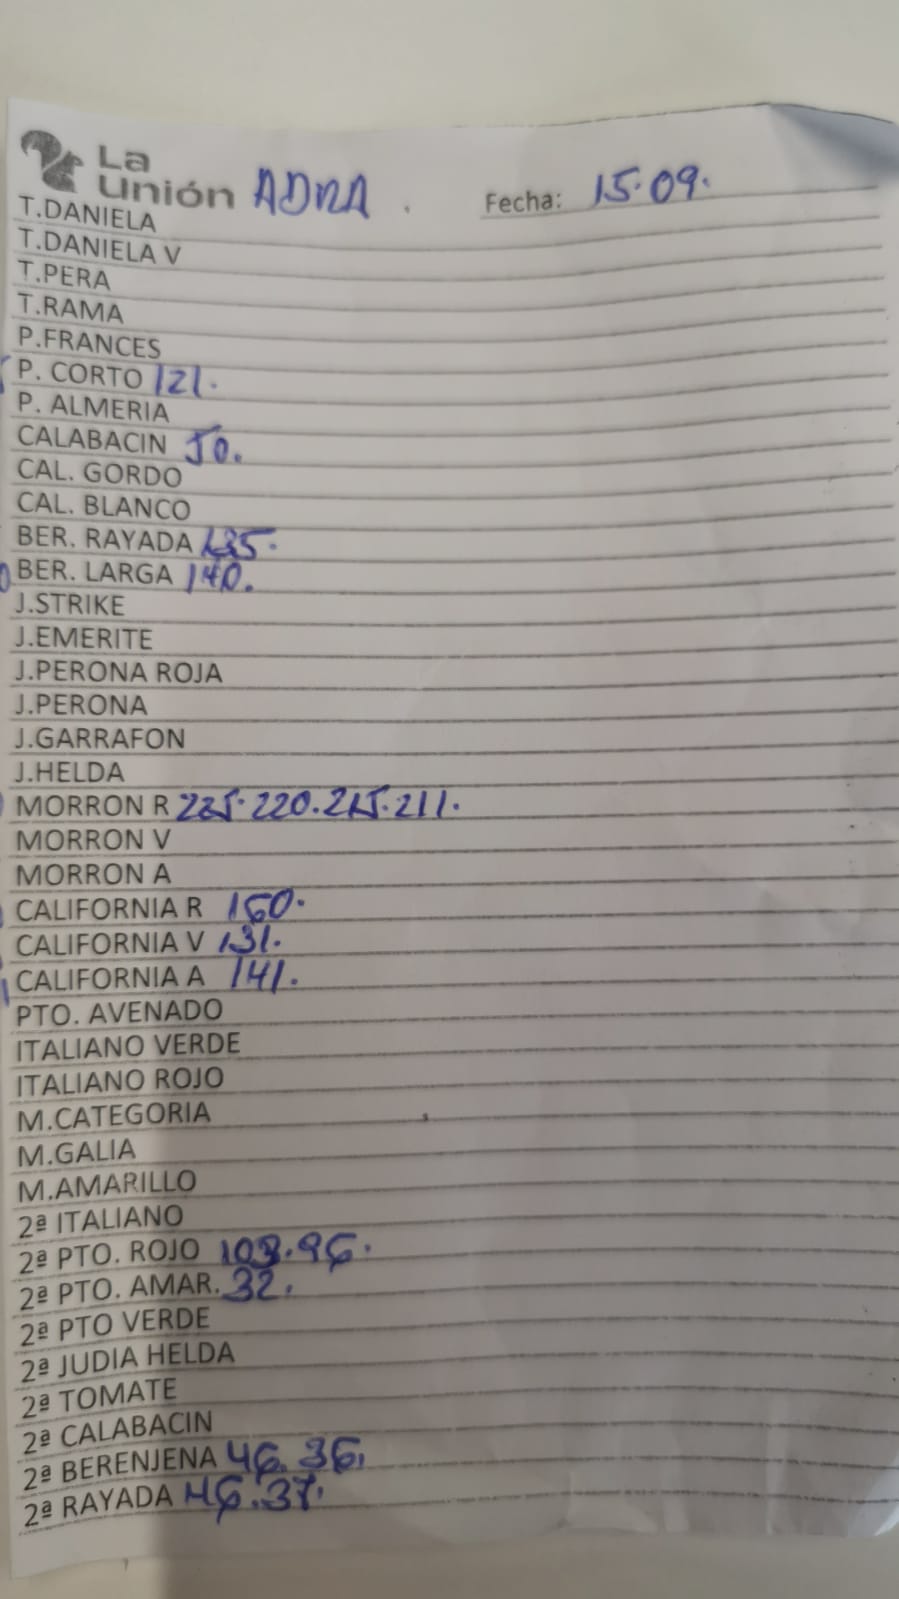 La Unión ADRA . Fecha: 15.09.
T.DANIELA
T.DANIELA V
T.PERA
T.RAMA
P.FRANCES
P. CORTO 121.
P. ALMERIA
CALABACIN 50.
CAL. GORDO
CAL. BLANCO
BER. RAYADA 135.
BER. LARGA 140.
J.STRIKE
J.EMERITE
J.PERONA ROJA
J.PERONA
J.GARRAFON
J.HELDA
MORRON R 225. 220. 215. 211.
MORRON V
MORRON A
CALIFORNIA R 160.
CALIFORNIA V 131.
CALIFORNIA A 141.
PTO. AVENADO
ITALIANO VERDE
ITALIANO ROJO
M.CATEGORIA
M.GALIA
M.AMARILLO
2ª ITALIANO
2ª PTO. ROJO 103. 96.
2ª PTO. AMAR. 32.
2ª PTO VERDE
2ª JUDIA HELDA
2ª TOMATE
2ª CALABACIN
2ª BERENJENA 46. 36.
2ª RAYADA 46. 37.